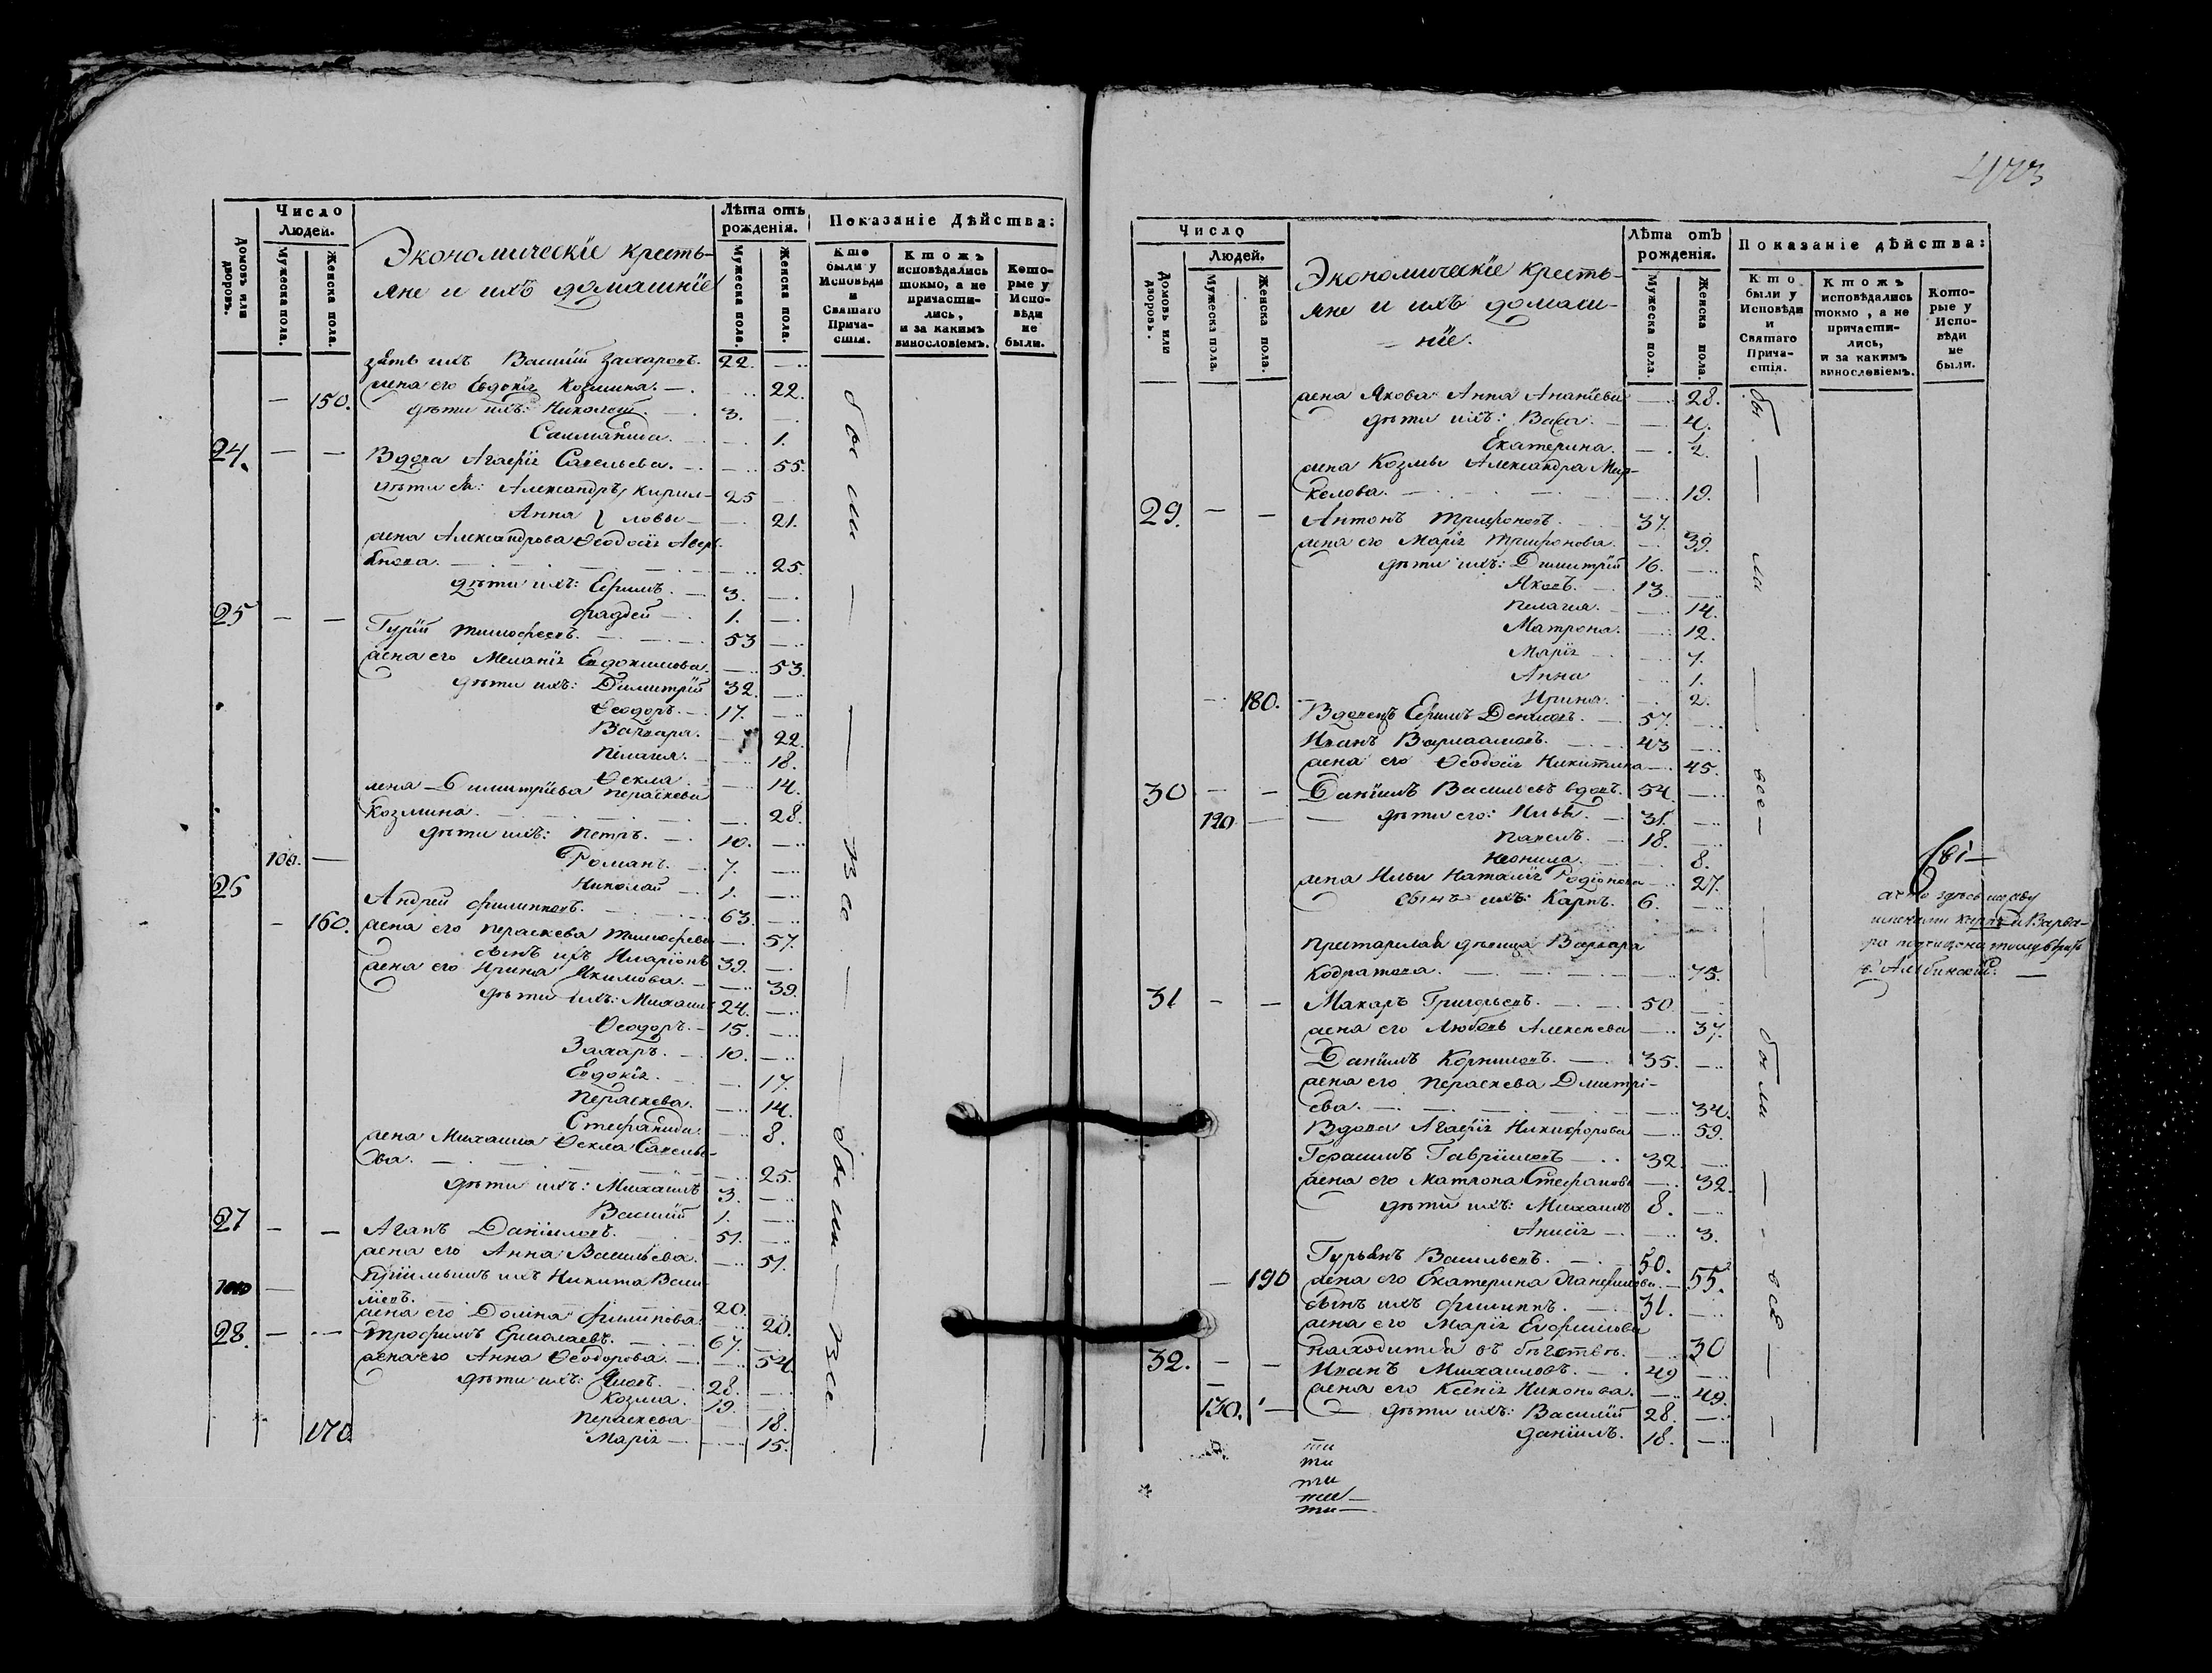 Число
Людей.
Домовъ или дворовъ.
Мужеска пола.
Женска пола.
Экономическїе кресть-
яне и ихъ домашнїе
Лѣта отъ рожденія.
Мужеска пола.
Женска пола.
Показаніе Дѣйства:
Кто были у Исповѣди и Святаго Прича-стія.
Ктожъ исповѣдались токмо, а не причасти-лись, и за какимъ винословіемъ.
Кото-рые у Испо-вѣди не были.
зять ихъ Василїй Захаровъ. 22.
жена его Евдокїя Козмина. 22.
150. дѣти ихъ: Николай. 3.
1.
24. Вдова Агафїя Савельева. 55.
дѣти ея: Александръ, Кирил- 25
Анна } ловы 21.
жена Александрова Ѳеодосїя Авер-
25.
дѣти ихъ: Ефимъ. 3.
Фаддей 1.
25 Гурїй Тимофеевъ. 53
жена его Меланїя Евдокимова. 53.
дѣти ихъ: Димитрїй 32.
Ѳеодоръ. 17.
Варвара. 22.
Пелагея. 18.
Ѳекла 14.
жена Димитрїева Параскева
Козмина. 28.
дѣти ихъ: Петръ. 10.
100. Романъ. 7.
Николай 1.
26 Андрей Филипповъ. 63.
160. жена его Пераскева Тимофеева 57.
сынъ ихъ Иларїонъ 39.
жена его Ирина Якимова. 39.
дѣти ихъ: Михаилъ 24.
Ѳеодоръ. 15.
Захаръ. 10.
Евдокїя. 17.
Пераскева. 14.
Стефанида. 8.
жена Михаила Ѳекла Савелье-
ва. 25.
дѣти ихъ: Михаилъ 3.
Василїй 1.
27 Агапъ Данїиловъ. 51.
жена его Анна Васильева. 51.
Прїимышъ ихъ Никита Васи-
лїевъ. 20.
жена его Домна Филипова. 20.
28. Трофимъ Ермолаевъ. 67.
жена его Анна Ѳеодорова. 54.
дѣти ихъ: Яковъ. 28.
Козма. 19.
Пераскева 18.
170. Марїя 15.
были — все — были — все
Число
Людей.
Домовъ или дворовъ.
Мужеска пола.
Женска пола.
Экономическїе кресть-
яне и ихъ домаш-
нїе.
Лѣта отъ рожденія.
Мужеска пола.
Женска пола.
Показаніе дѣйства:
Кто были у Исповѣди и Святаго Прича-стія.
Ктожъ исповѣдались токмо, а не причасти-лись, и за какимъ винословіемъ.
Кото-рые у Испо-вѣди не были.
жена Якова Анна Ананїева 28.
дѣти ихъ: Васса. 4.
Екатерина. 1/2.
жена Козмы Александра Мар-
келова. 19.
29. Антонъ Трифоновъ. 37.
жена его Марїя Трифонова. 39.
дѣти ихъ: Димитрїй 16.
Яковъ. 13.
Пелагея. 14.
Матрона. 12.
Марїя 7.
Анна 1.
180. Ирина. 2.
Вдовецъ Ефимъ Денисовъ. 57.
Иванъ Варлаамовъ. 43
жена его Ѳеодосїя Никитина 45.
30 Данїилъ Васильевъ вдовъ. 54.
120 дѣти его: Илья. 31.
Павелъ. 18.
Неонила. 8.
жена Ильи Наталїя Родїонова 27.
сынъ ихъ: Карпъ. 6.
Престарелая дѣвица Варвара
Кодратова. 75.
31 Макаръ Григорьевъ. 50
жена его Любовь Алексеева 37.
Данїилъ Корниловъ. 35.
жена его Пераскева Дмитрі-
ева. 34.
Вдова Агафїя Никифорова 59.
Герасимъ Гаврїиловъ 32.
жена его Матрона Стефанова 32.
дѣти ихъ: Михаилъ 8.
Анисїя 3.
Гурьянъ Васильевъ. 50.
190 жена его Екатерина 55.
сынъ ихъ Филиппъ. 31.
жена его Марїя Евфимова
находится въ бѣгствѣ. 30
32. Иванъ Михаиловъ. 49
жена его Ксенїя Никонова. 49.
130. дѣти ихъ: Василїй 28.
Данїилъ. 18.
бы — ли — все — были — все
ти
ти
ти
ти
ти